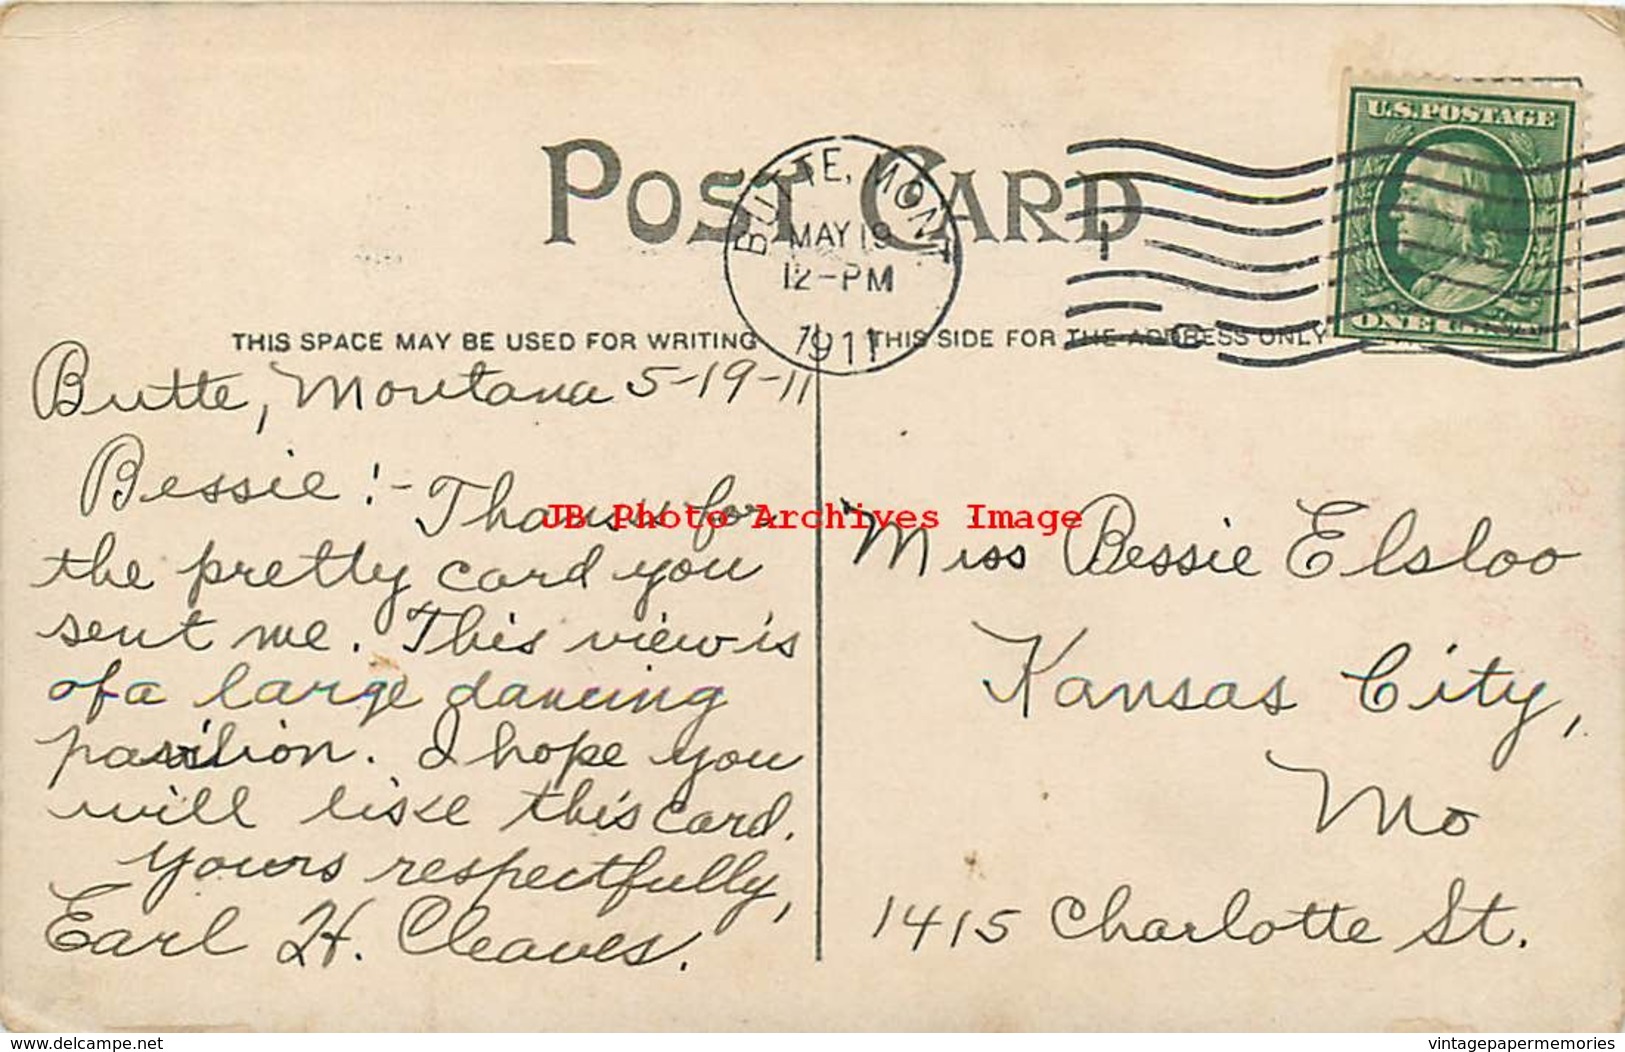 POST CARD
BUTTE, MONT
MAY 19
12-PM
1911
1
U.S.POSTAGE
ONE CENT
THIS SPACE MAY BE USED FOR WRITING
THIS SIDE FOR THE ADDRESS ONLY
Butte, Montana 5-19-11
Bessie!- Thanks for
the pretty card you
sent me. This view is
of a large dancing
pavilion. I hope you
will like this card.
Yours respectfully,
Earl H. Cleaves.
JB Photo Archives Image
Miss Bessie Elsloo
Kansas City,
Mo
1415 Charlotte St.
www.delcampe.net
vintagepapermemories